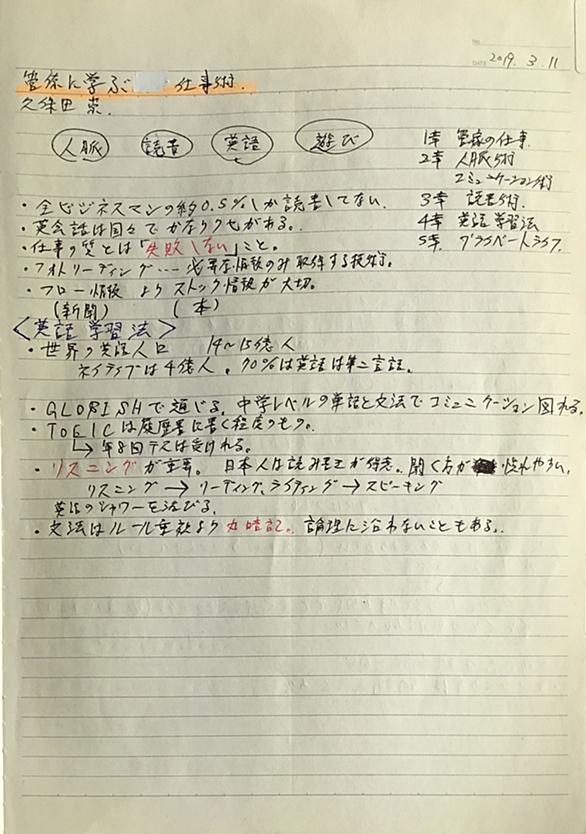 2019. 3. 11
管係に学ぶ 仕事術.
久保田 崇.
人脈 読書 英語 遊び
1章 官僚の仕事.
2章 人脈術
コミュニケーション術
3章 読書術.
4章 英語学習法
5章. プライベートライフ.
・全ビジネスマンの約0.5%しか読書してない.
・英会話は国々でかなりクセがある。.
・仕事の質とは「失敗しない」こと。
・フォトリーディング… 必要な情報のみ取得する技術。
・フロー情報 よりストック情報が大切。
(新聞) (本)
〈英語学習法〉
・世界の英語人口 14~15億人
ネイティブは4億人. 70%は英語は第二言語.
・GLOBISHで通じる. 中学レベルの単語と文法でコミュニケーション図れる.
・TOEICは履歴書に書く程度のもの。
↳ 年8回テスは受けれる。
・リスニングが重要。 日本人は読み書きが得意. 聞く方が 慌れやすい,
リスニング → リーディング、ライティング → スピーキング
英語のシャワーを浴びる.
・文法はルール重視より丸暗記。 論理に沿わないこともある.